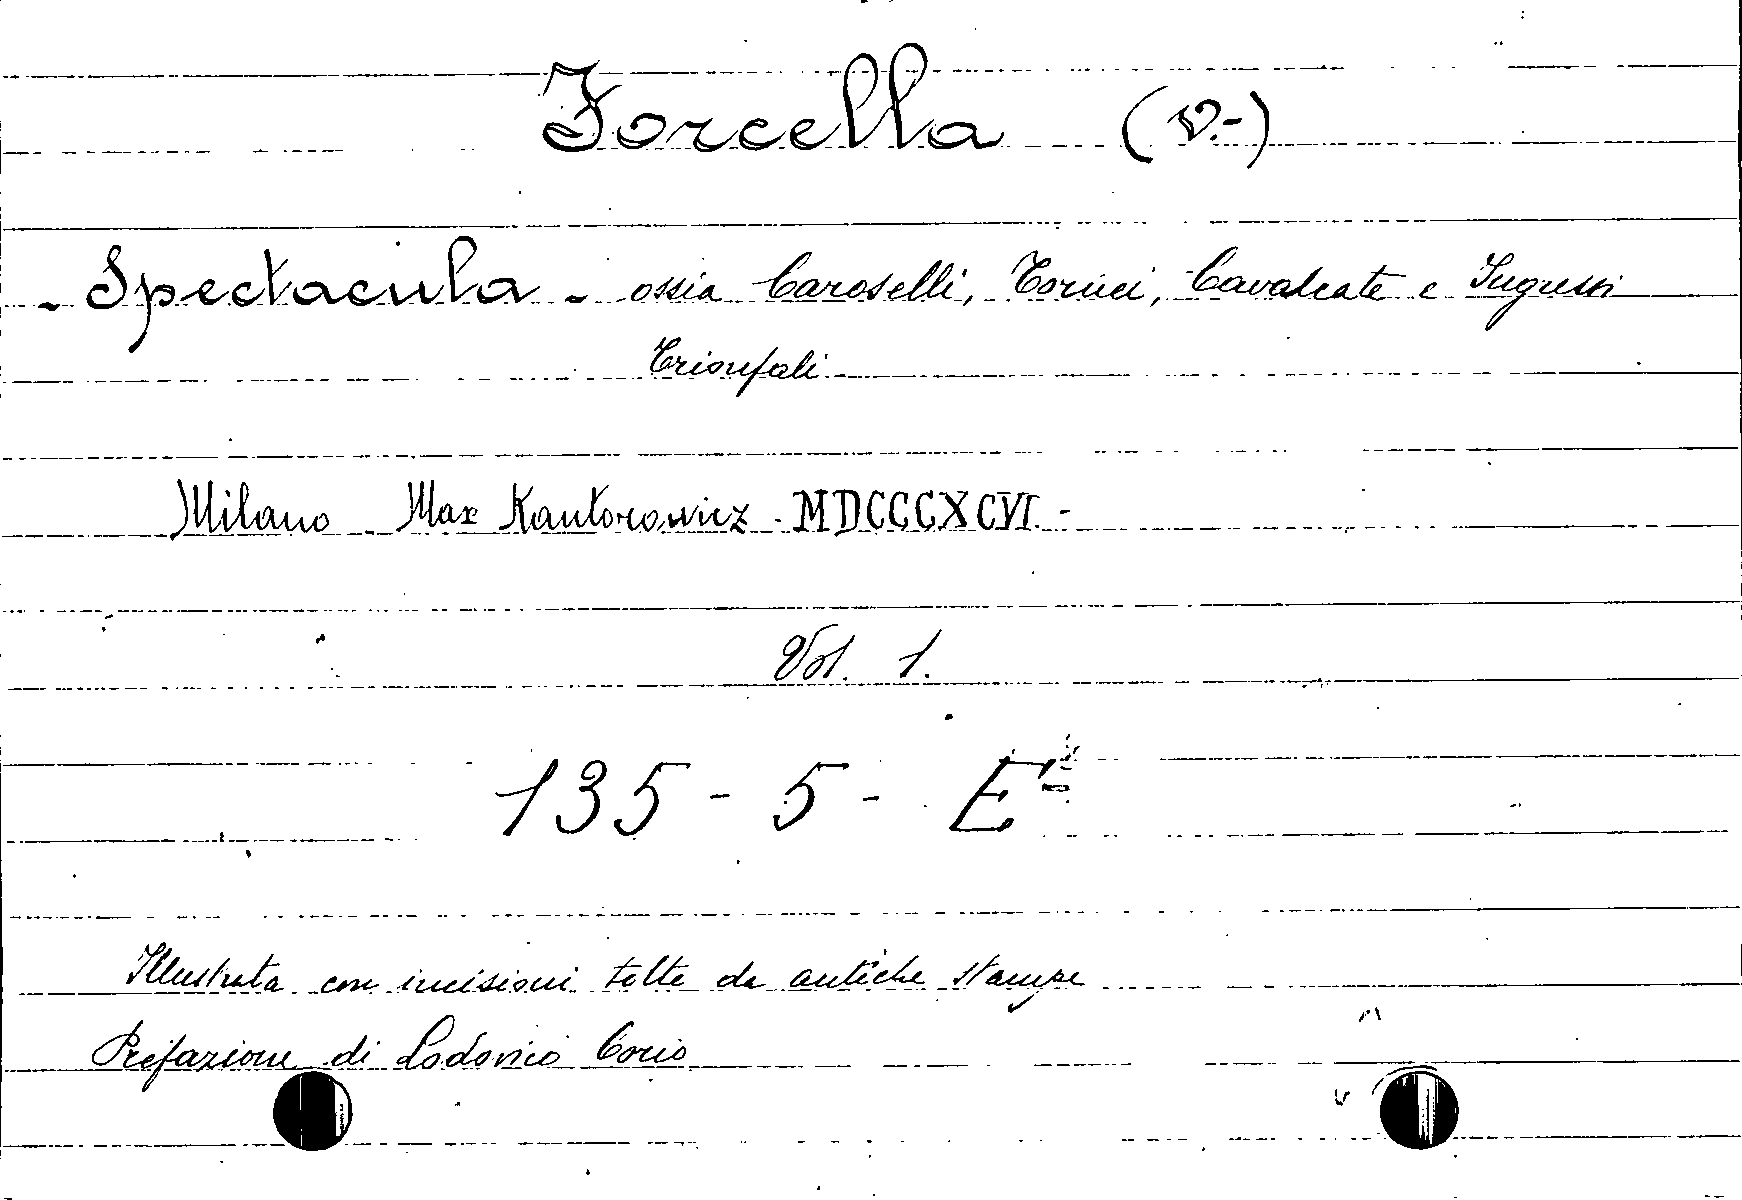 Forcella (V.-)
- Spectacula - ossia Caroselli, Tornei, Cavalcate e Ingressi
Trionfali
Milano - Max Kantorowicz - MDCCCXCVI -
Vol. 1.
135 - 5 - E
Illustrata con incisioni tolte da antiche stampe
Prefazione di Lodovico Corio